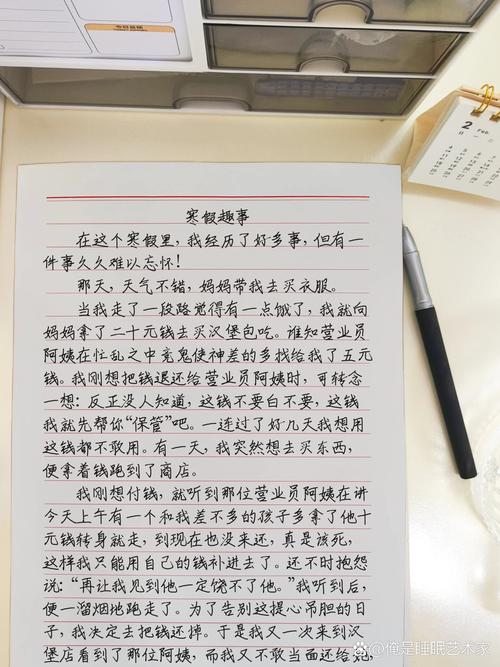 今日总结
2
Feb.
寒假趣事
在这个寒假里，我经历了好多事，但有一
件事久久难以忘怀！
那天，天气不错，妈妈带我去买衣服。
当我走了一段路觉得有一点饿了，我就向
妈妈拿了二十元钱去买汉堡包吃。谁知营业员
阿姨在忙乱之中竟鬼使神差的多找给我了五元
钱。我刚想把钱退还给营业员阿姨时，可转念
一想：反正没人知道，这钱不要白不要，这钱
我就先帮你“保管”吧。一连过了好几天我想用
这钱都不敢用。有一天，我突然想去买东西，
便拿着钱跑到了商店。
我刚想付钱，就听到那位营业员阿姨在讲
今天上午有一个和我差不多的孩子多拿了他十
元钱转身就走，到现在也没来还，真是该死，
这样我只能用自己的钱补进去了。还不时抱怨
说：“再让我见到他一定饶不了他。”我听到后，
便一溜烟地跑走了。为了告别这提心吊胆的日
子，我决定去把钱还掉。于是我又一次来到汉
堡店看到了那位阿姨，而我又不敢当面还给她
@俺是睡眠艺术家